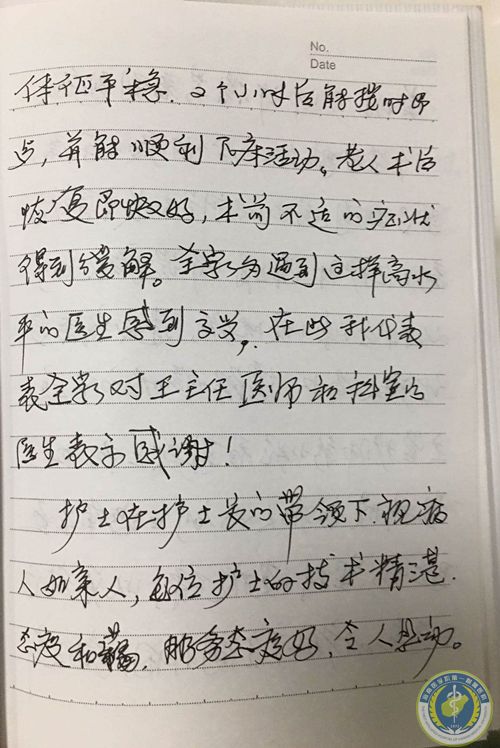 No.
Date
体征平稳．2个小时后解搅时
点，并能顺利下床活动。老人术后
恢复即快又好，术前不适的症状
得到缓解。全家为遇到这样高水
平的医生感到高兴，在此我代表
表全家对王主任医师和科室的
医生表示感谢！
护士在护士长的带领下．视病
人如亲人，每位护士的技术精湛．
态度和蔼，服务态度好，令人感动。